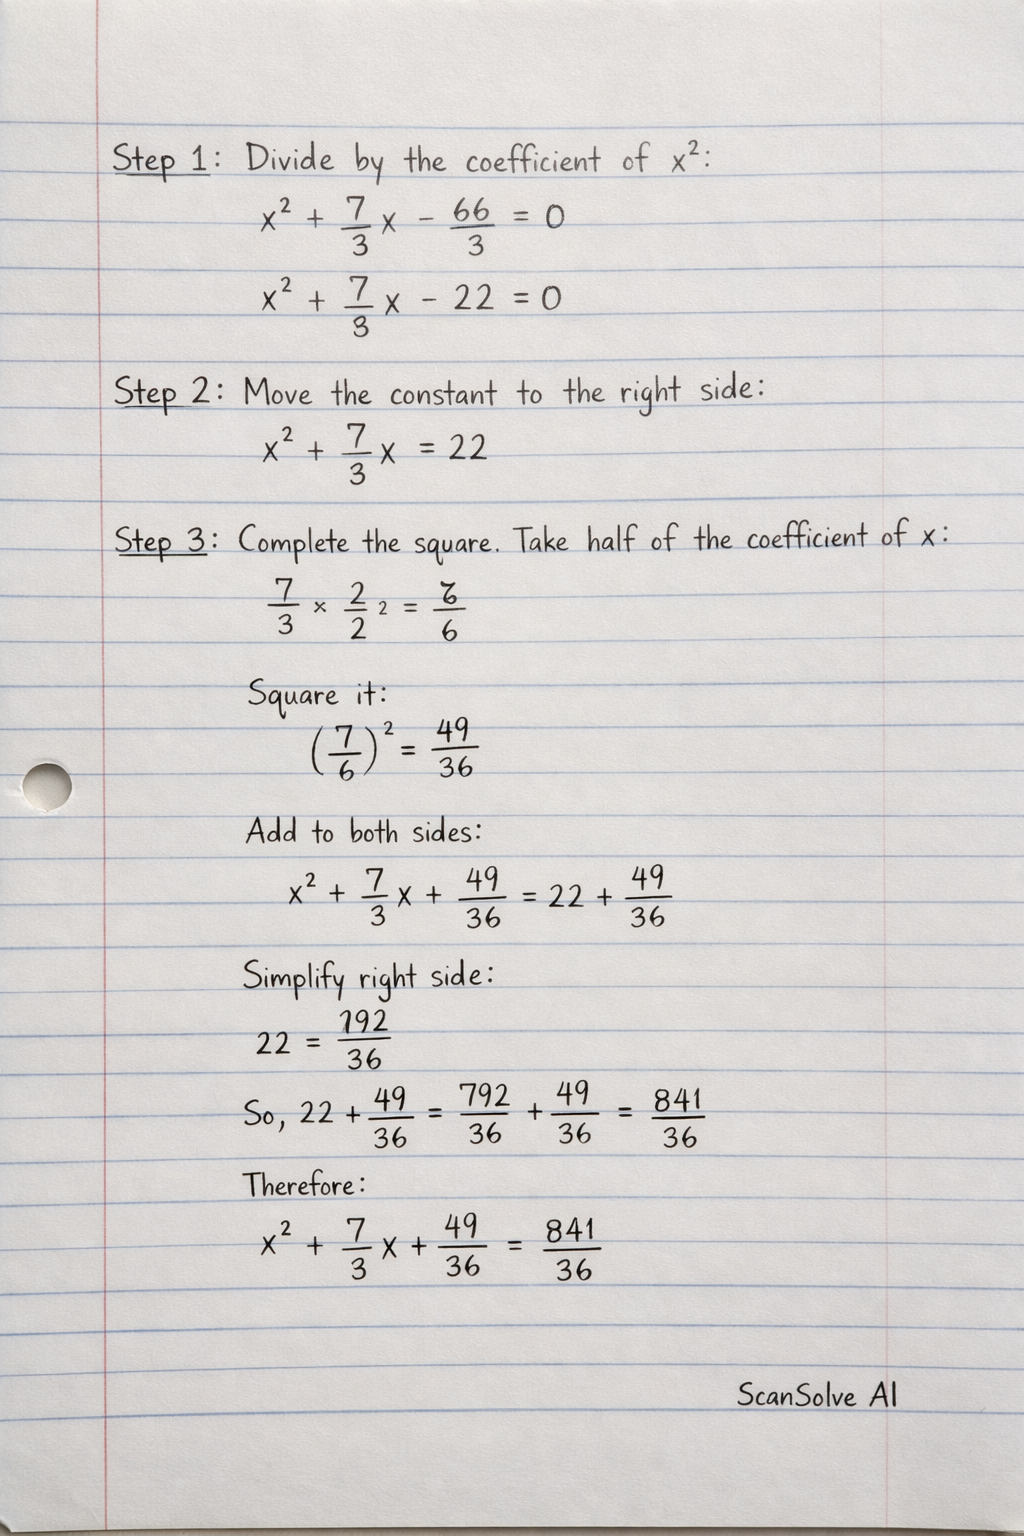 Step 1: Divide by the coefficient of x²:
x² + 7/3 x - 66/3 = 0
x² + 7/3 x - 22 = 0
Step 2: Move the constant to the right side:
x² + 7/3 x = 22
Step 3: Complete the square. Take half of the coefficient of x:
7/3 × 2/2 2 = /6
Square it:
(7/6)² = 49/36
Add to both sides:
x² + 7/3 x + 49/36 = 22 + 49/36
Simplify right side:
22 = 792/36
So, 22 + 49/36 = 792/36 + 49/36 = 841/36
Therefore:
x² + 7/3 x + 49/36 = 841/36
ScanSolve AI